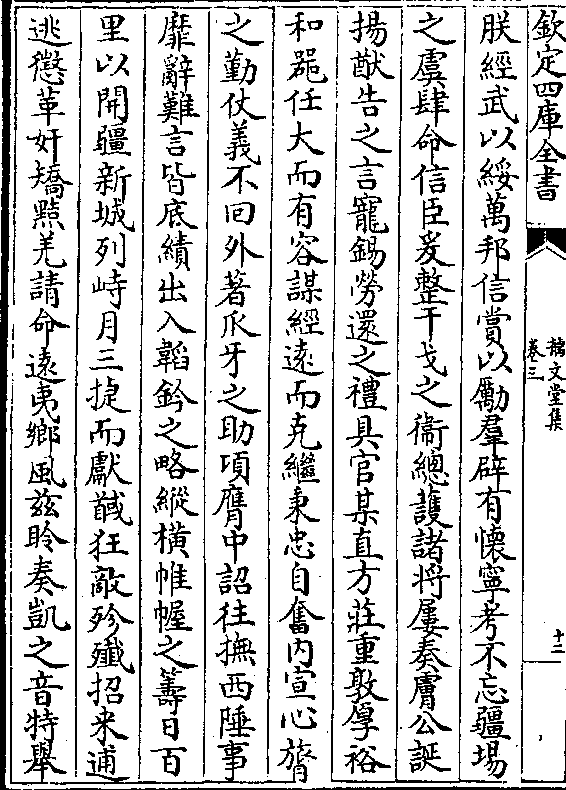 欽定四庫全書
橘文堂集
卷三
十三
朕經武以綏萬邦信賞以勵羣辟有懷寧考不忘疆埸
之虞肆命信臣爰整干戈之衛總護諸將屢奏膚公誕
揚猷告之言寵錫勞還之禮具官某直方莊重敦厚裕
和器任大而有容謀經遠而克繼秉忠自奮内宣心膂
之勤仗義不回外著爪牙之助頃膺中詔往撫西陲事
靡辭難言皆底績出入韜鈐之略縱橫帷幄之籌日百
里以開疆新城列峙月三捷而獻馘狂敵殄殲招来逋
逃懲革奸矯㸃羌請命逺夷鄉風兹聆奏凱之音特舉